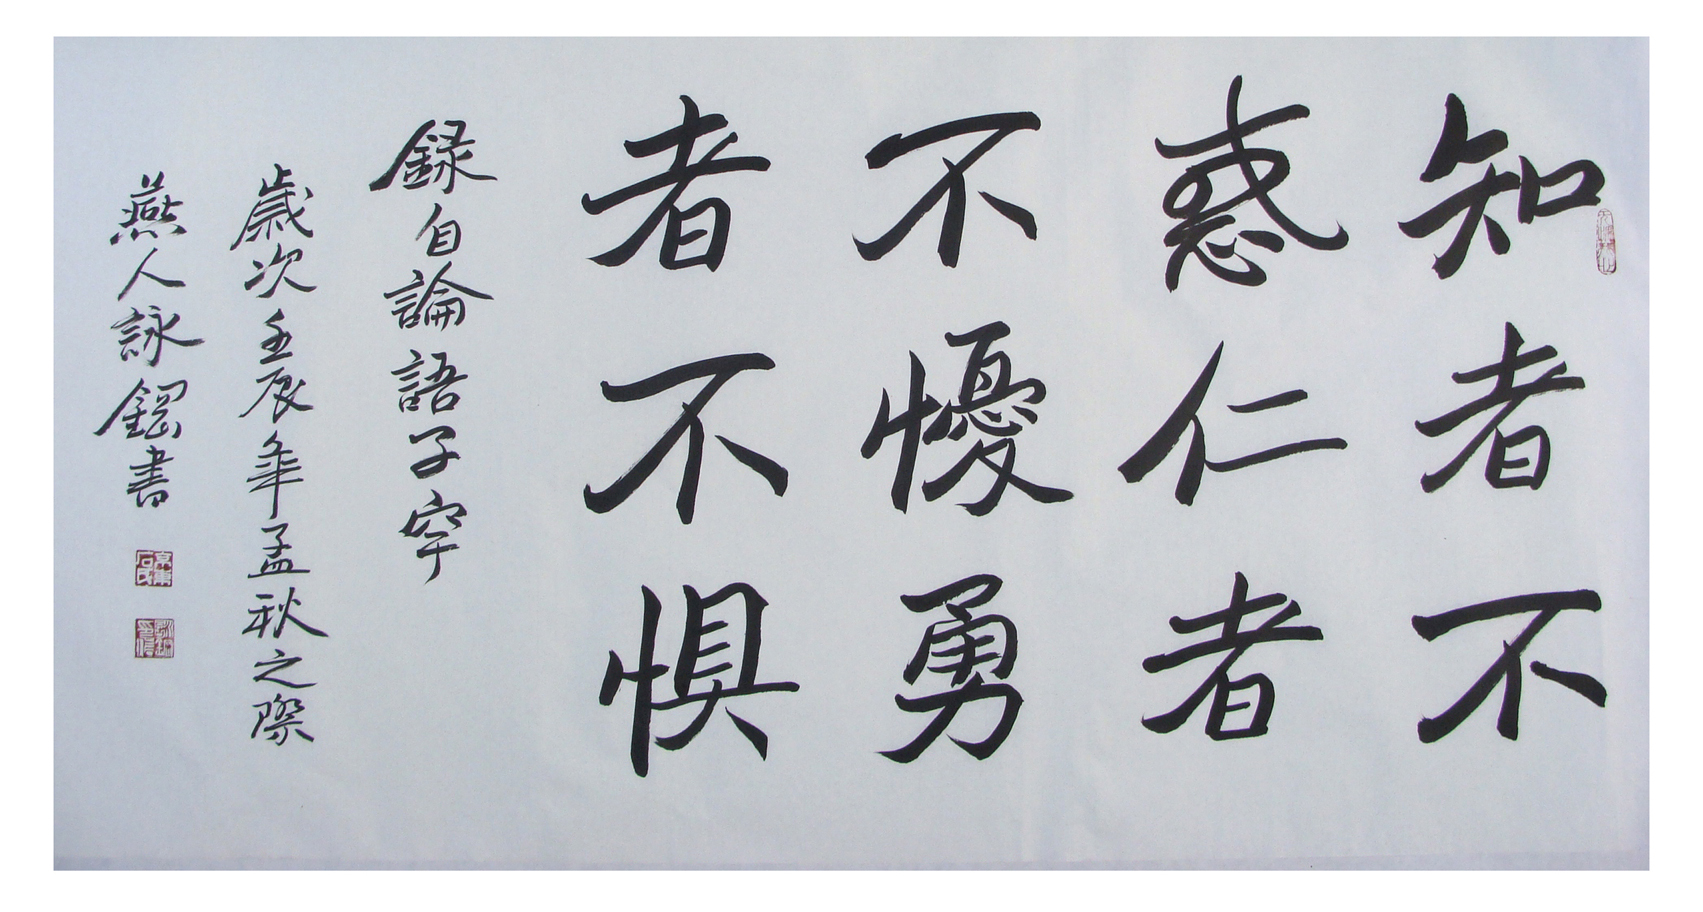 知者不
惑仁者
不憂勇
者不懼
録自論語子罕
歲次壬辰年孟秋之際
燕人詠鋼書